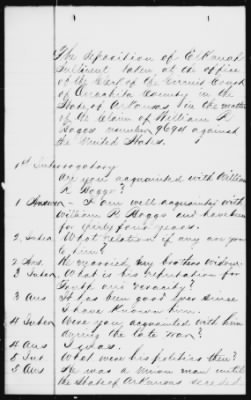 The deposition of Elkanah
taken at the office
of the Clerk of the Circuit Court
of Ouachita County in the
State of Arkansas in the matter
of the Claim of William R
Boggs number 9698 against
the United States.
1st Interrogatory
Are you acquainted with William
R Boggs?
1 Answer - I am well acquainted with
William R Boggs and have been
for years.
2. Inter What relation if any are you
to him?
2 Ans He married my brothers widow.
3 Inter. What is his reputation for
Truth and veracity?
3 Ans It has been good ever since
I have known him.
4 Inter Were you acquainted with him
during the late war?
4 Ans I was.
5 Int What were his politics then?
5 Ans He was a Union man until
the State of Arkansas seceded